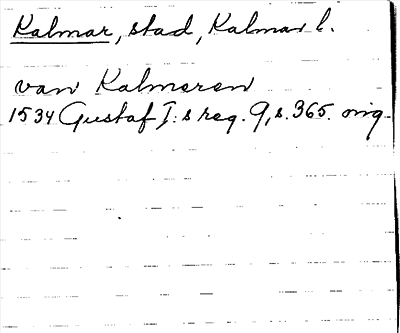 Kalmar, stad, Kalmar l.
van Kalmeren
1534 Gustaf I:s reg. 9, s. 365. orig.